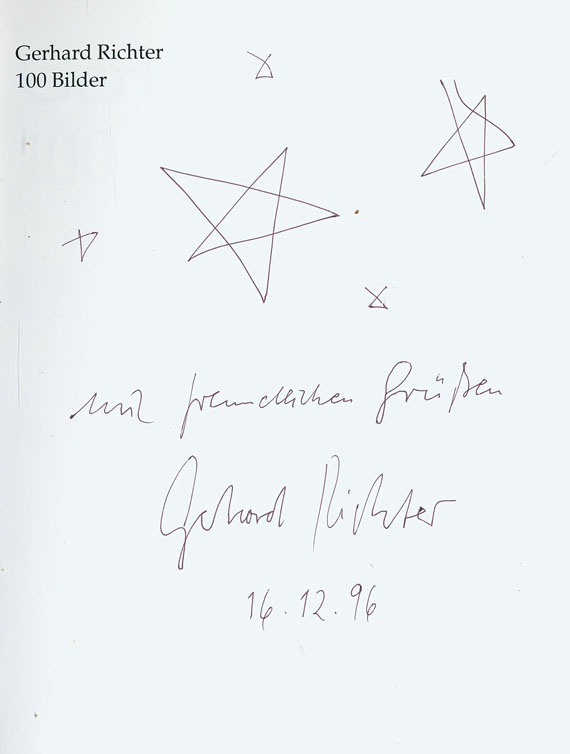 Gerhard Richter
100 Bilder
mit freundlichen Grüßen
Gerhard Richter
16.12.96